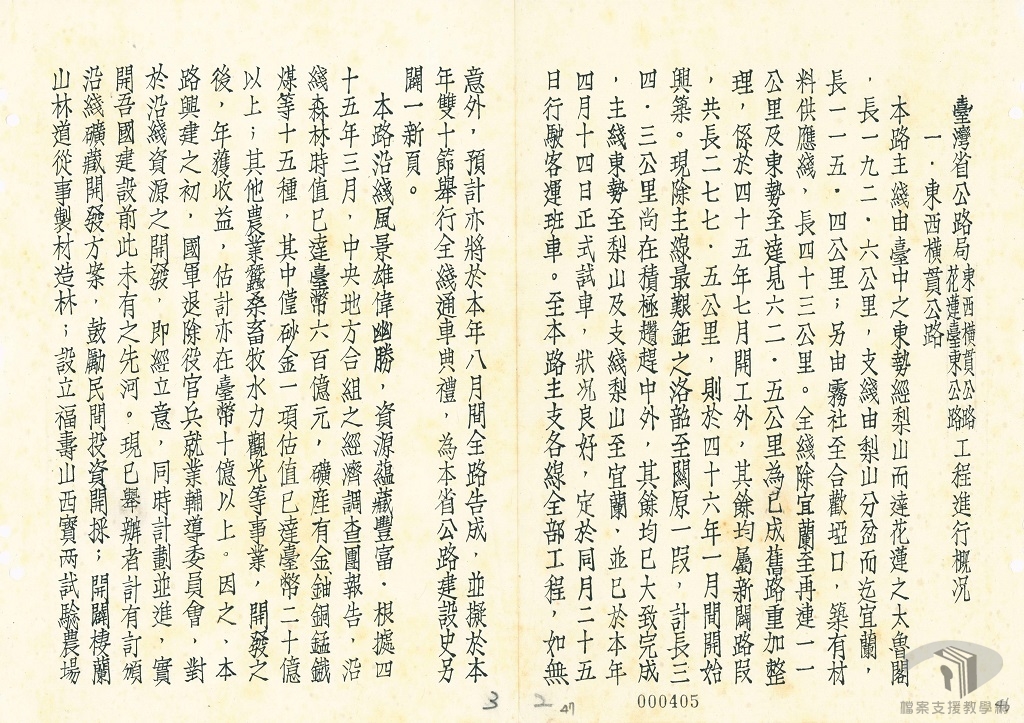 臺灣省公路局東西橫貫公路花蓮臺東公路工程進行概況
一．東西橫貫公路
本路主綫由臺中之東勢經梨山而達花蓮之太魯閣
，長一九二．六公里，支綫由梨山分岔而迄宜蘭，
長一一五．四公里；另由霧社至合歡埡口，築有材
料供應綫，長四十三公里。全綫除宜蘭至再連一一
公里及東勢至達見六二．五公里為已成舊路重加整
理，係於四十五年七月開工外，其餘均屬新闢路段
，共長二七七．五公里，則於四十六年一月間開始
興築。現除主線最艱鉅之洛韶至關原一段，計長三
四．三公里尚在積極趲趕中外，其餘均已大致完成
，主綫東勢至梨山及支綫梨山至宜蘭，並已於本年
四月十四日正式試車，狀況良好，定於同月二十五
日行駛客運班車。至本路主支各線全部工程，如無
意外，預計亦將於本年八月間全路告成，並擬於本
年雙十節舉行全綫通車典禮，為本省公路建設史另
闢一新頁。
本路沿綫風景雄偉幽勝，資源蘊藏豐富．根據四
十五年三月，中央地方合組之經濟調查團報告，沿
綫森林時值已達臺幣六百億元，礦產有金鈾銅錳鐵
煤等十五種，其中僅砂金一項估值已達臺幣二十億
以上；其他農業蠶桑畜牧水力觀光等事業，開發之
後，年獲收益，估計亦在臺幣十億以上。因之，本
路興建之初，國軍退除役官兵就業輔導委員會，對
於沿綫資源之開發，即經立意，同時計劃並進，實
開吾國建設前此未有之先河。現已舉辦者計有訂頒
沿綫礦藏開發方案，鼓勵民間投資開採；開闢棲蘭
山林道從事製材造林；設立福壽山西寶兩試驗農場
3
2
47
000405
46
檔案支援教學網